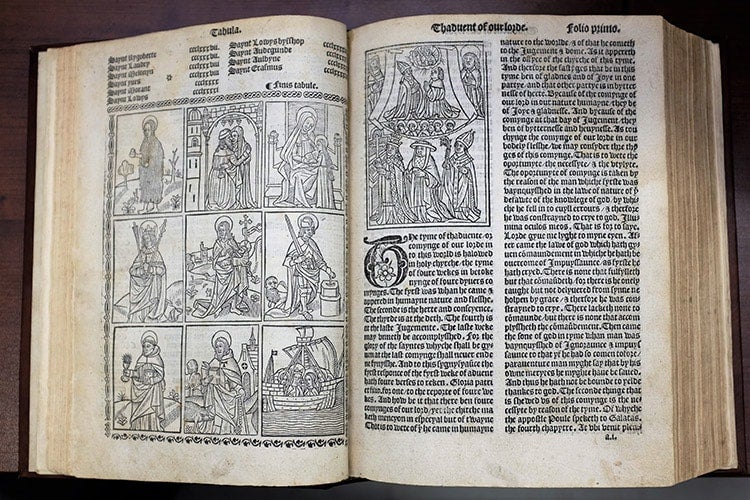 Tabula.
Saynt Rygoberte ccclxxvii.
Saynt Landry ccclxxviii.
Saynt
Saynt yues
Saynt Morant ccclxxxi
Saynt Lowys ccclxxxi
Saynt Lowys bysshop
Saynt Aldegunde
Saynt Albyne
Saynt Erasmus
¶ Finis tabule.
Thaduent of our lorde. Folio primo.
The tyme of thaduente or
comynge of our lorde in
to this world is halowed
in holy chyrche, the tyme
of foure wekes in betoke
nynge of foure dyuers co
mynges. The fyrst was whan he came &
appered in humayne nature and flesshe.
The seconde is the herte and conscyence.
The thyrde is at the deth. The fourth is
at the laste Jugemente. The laste weke
may vnneth be accomplysshed. For the
glory of the sayntes whyche shall be gyu
uen at the last comynge shall neuer ende
ne fynysshe. And to this sygnyfyaunce the
fyrst responce of the fyrst weke of aduent
hath foure verses to reken. Gloria patri
et filio, for one, to the reporte of foure we
kes. And how be it that there ben foure
comynges of our lord, yet the chirche ma
keth mencyon in specyal but of twayne
That is to were of yͤ he came in humayne
nature to the worlde, & of that he cometh
to the Jugement & dome. As it apperyth
in the offyce of the chyrche of this tyme.
And therfore the fastynges that be in this
tyme ben of gladnes and of Joye in one
partye, and that other partye is in bytter
nesse of herte. Bycause of the comynge of
our lord in our nature humayne, they be
of Joye & gladnesse. And bycause of the
comynge at that day of Jugement, they
ben of bytternesse and heuynesse. As tou
chynge the comynge of our lorde in our
bodely flesshe, we may consyder thre thyn
ges of this comynge. That is to wete the
oportunyte, the necessyte, & the vtylyte.
The oportunyte of comynge is taken by
the reason of the man whiche fyrste was
vaynquysshed in the lawe of nature of yͤ
defaute of the knowlege of god, by whiche
he fell in to euyll errours, & therfore he
was constrayned to crye to god. Illu
mina oculos meos. That is for to saye.
Lorde gyue me lyght to myne eyen. Af=
ter came the lawe of god which hath gy=
uen cōmaundement in whiche he hath be
ouercome of Impuyssaunce, as fyrste he
hath cryed. There is none that fulfylleth
but that cōmaūdeth. For there is he onely
taught but not delyuered from synne ne
holpen by grace, & therfore he was con
strayned to crye. There lacketh none to
cōmaunde, but there is none that accom
plyssheth the cōmaūdement. Then came
the sone of god in tyme whan man was
vaynquysshed of Ignoraunce & impuys
saunce so that yf he had so comen tofore,
parauenture man myght say that by his
owne meryces he myghte haue be saued.
And thus he had not be bounde to yelde
thankes to god. The seconde thinge that
is shewed vs of this comynge is the ne=
cessyte by reason of the tyme. Of whyche
the appostel Poule speketh to Galatas,
the fourth chapytre. At vbi venit plenı
a.i.